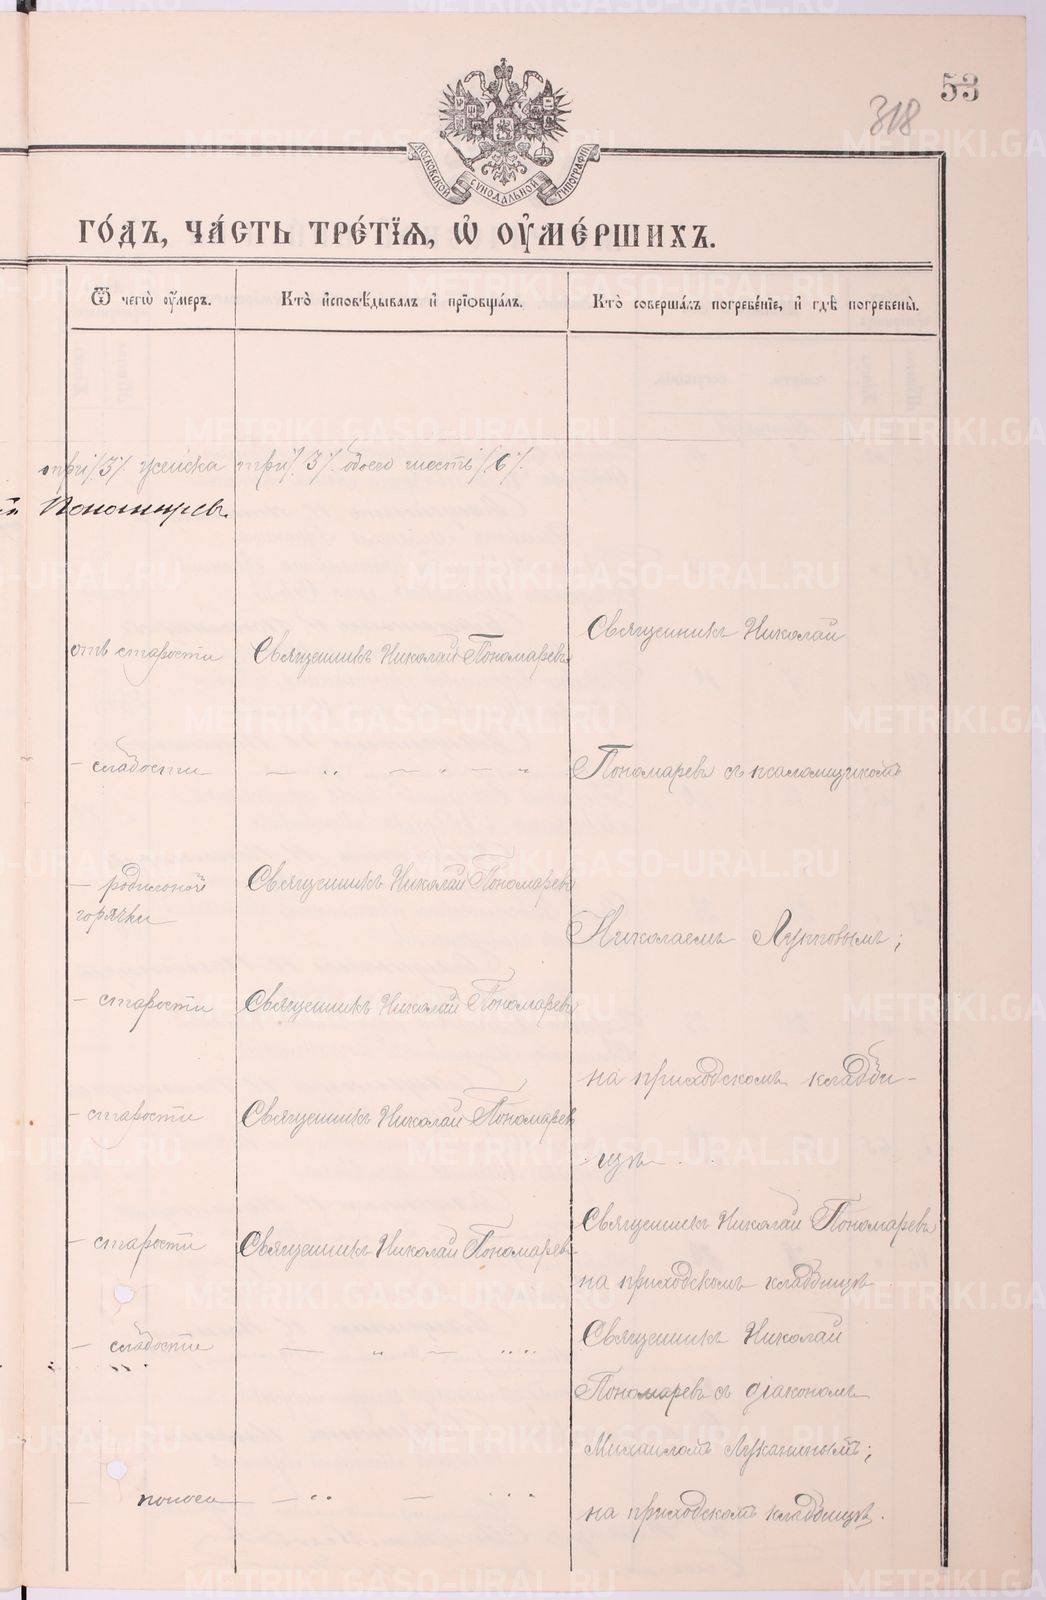 53
318
МОСКОВСКОЙ СѴНОДАЛЬНОЙ ТИПОГРАФІИ
ГО́ДЪ, ЧА́СТЬ ТРЕ́ТЇѦ, Ѡ҆ ОУ҆МЕ́РШИХЪ.
Ѿ чегѡ̀ оу҆́меръ.
Кто̀ и҆сповѣ́дывалъ и҆ прїѡбща́лъ.
Кто̀ соверша́лъ погребе́нїе, и҆ гдѣ̀ погребены̀.
три /3/. женска три /3/. обоего шесть /6/.
Пономаревъ.
отъ старости
Священникъ Николай Пономаревъ
Священникъ Николай
— слабости
— „ — „ — „
Пономаревъ съ псаломщикомъ
— родильной
горячки
Священникъ Николай Пономаревъ
Николаемъ
— старости
Священникъ Николай Пономаревъ
на приходскомъ кладби-
— старости
Священникъ Николай Пономаревъ
щѣ.
— старости
Священникъ Николай Пономаревъ
Священникъ Николай Пономаревъ
на приходскомъ кладбищѣ
— слабости
— „ — „ „
Священникъ Николай
Пономаревъ съ діакономъ
Михаиломъ Лукинымъ;
— поноса
— „ — „ „
на приходскомъ кладбищѣ.
METRIKI.GASO-URAL.RU